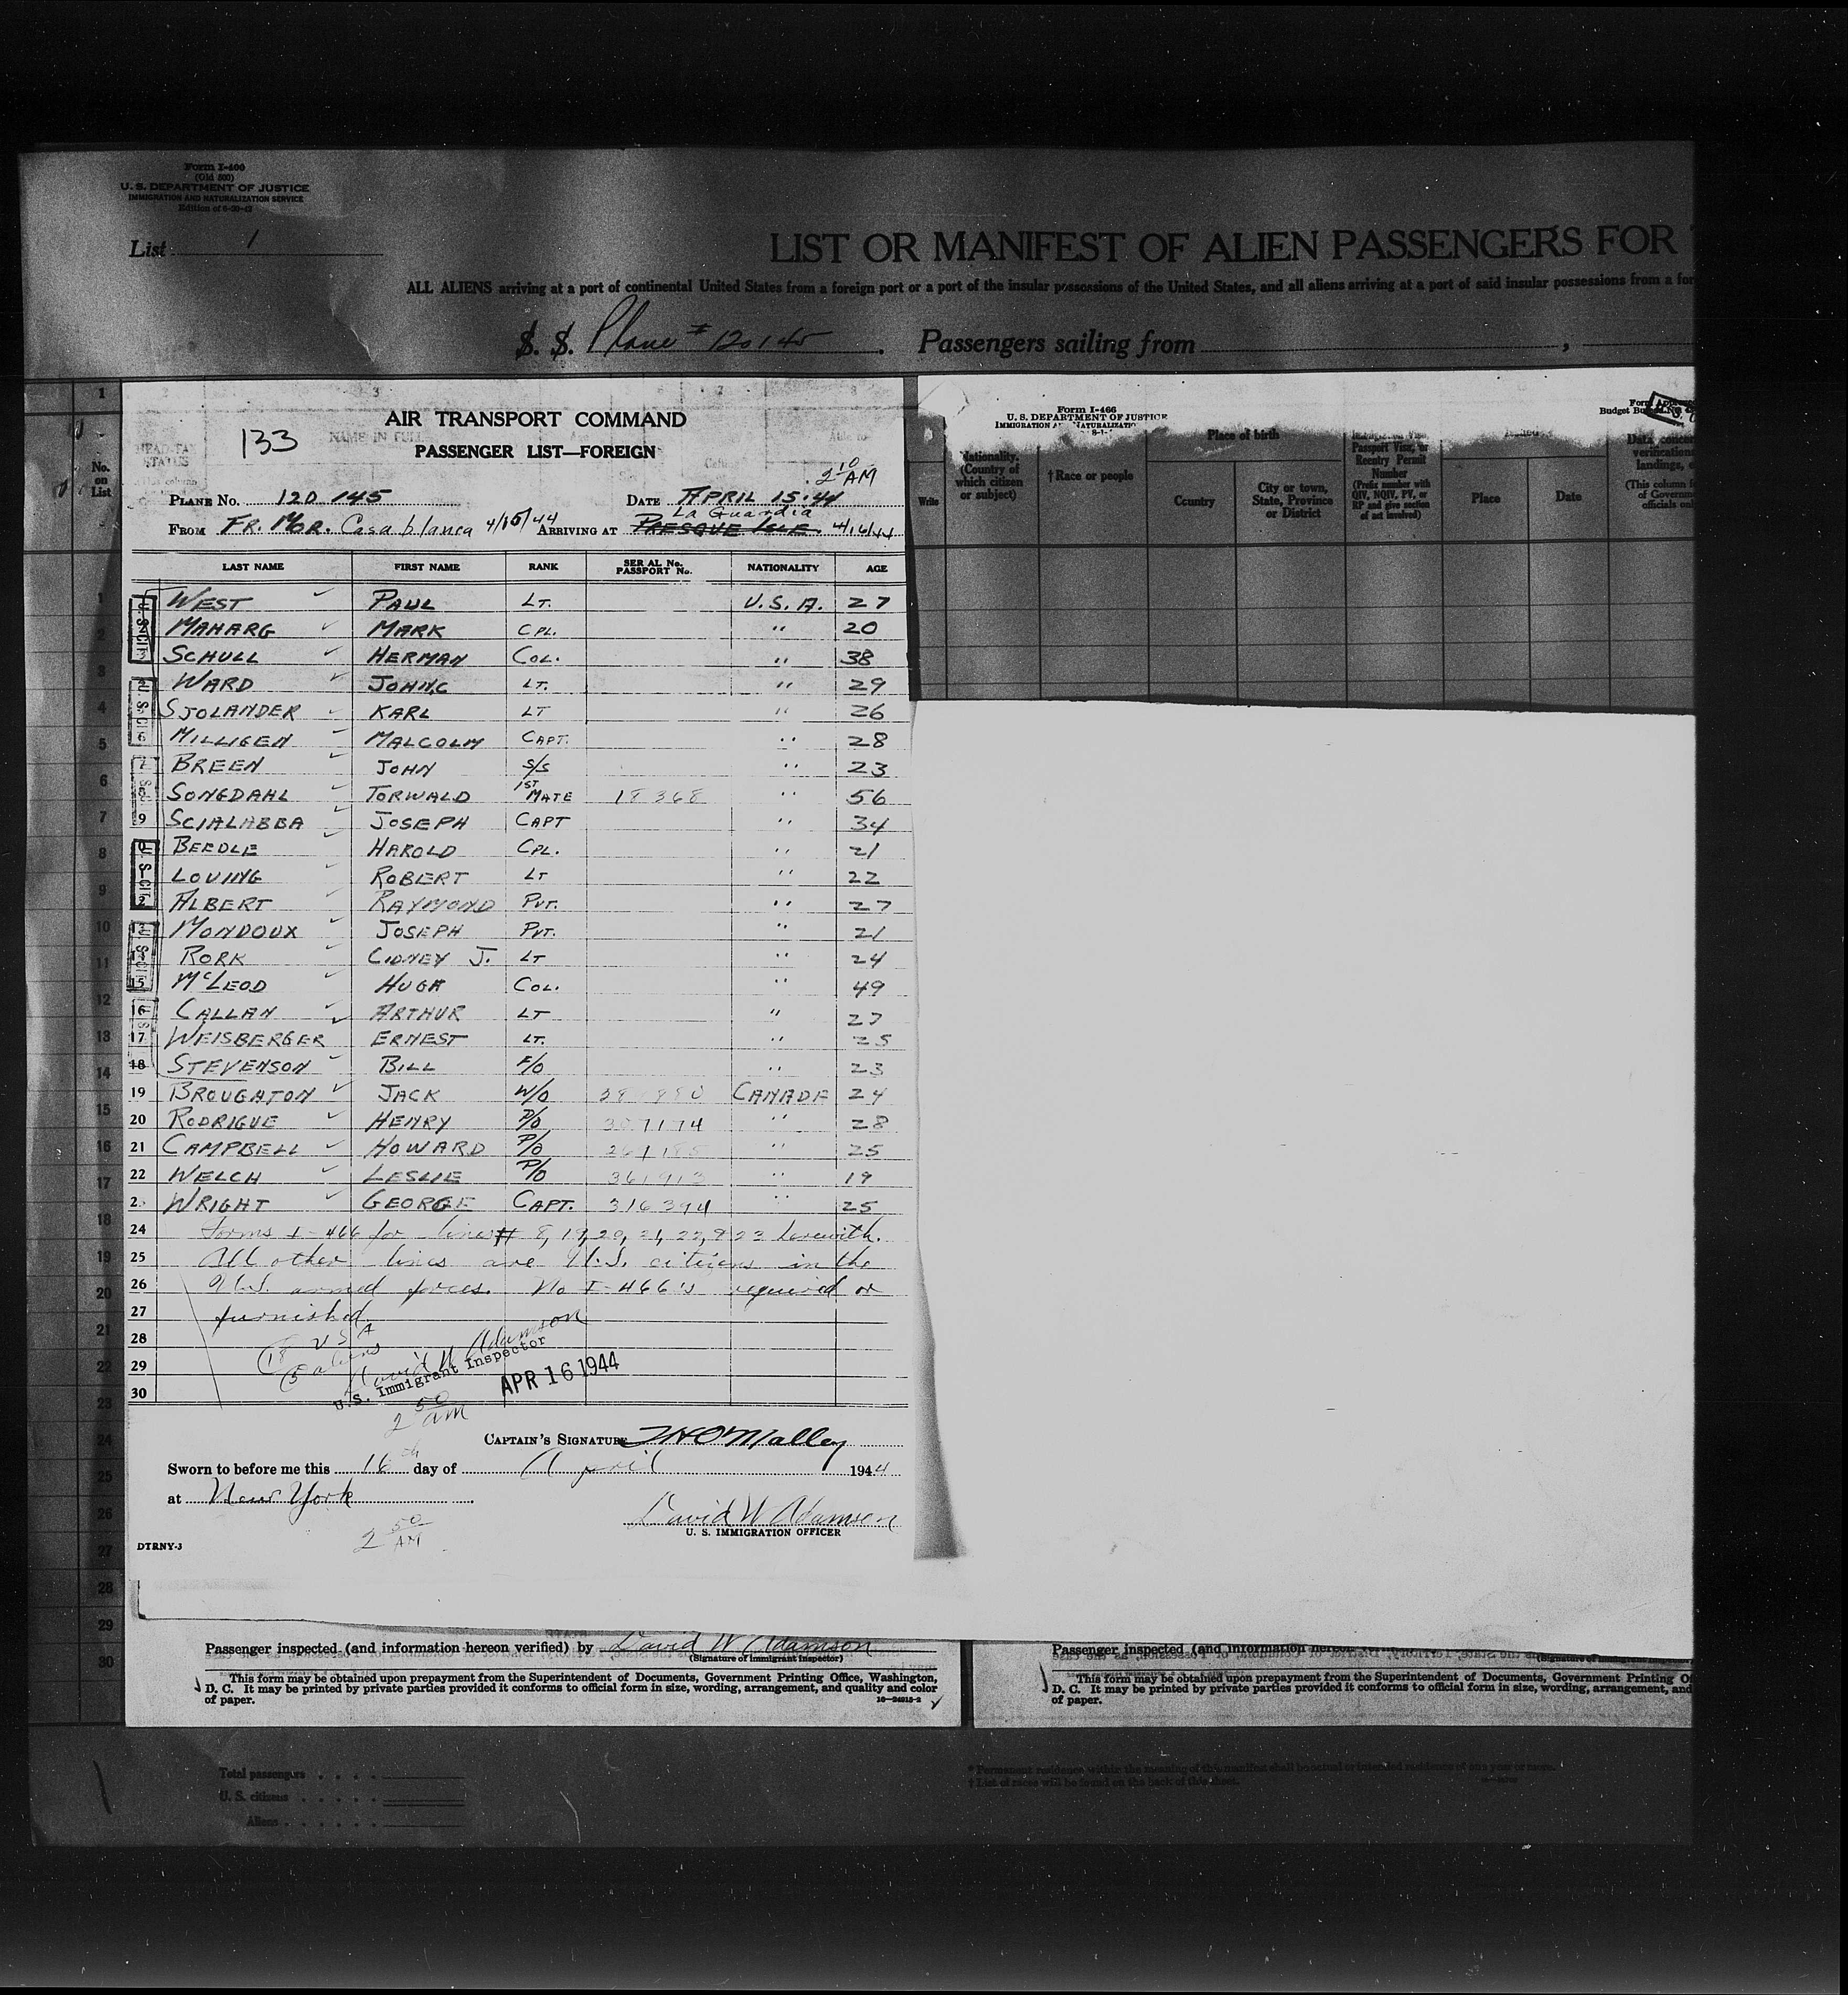 Form I-400
(Old 500)
U. S. DEPARTMENT OF JUSTICE
IMMIGRATION AND NATURALIZATION SERVICE
List 1
LIST OR MANIFEST OF ALIEN PASSENGERS FOR
ALL ALIENS arriving at a port of continental United States from a foreign port or a port of the insular possessions of the United States, and all aliens arriving at a port of said insular possessions from a for
S. S. Plane # 120145 . Passengers sailing from ,
No. on List
AIR TRANSPORT COMMAND
133
PASSENGER LIST—FOREIGN
2 10 AM
PLANE NO. 120 145 DATE APRIL 15-44
FROM FR. MOR. Casablanca 4/15/44 ARRIVING AT PRESQUE ISLE La Guardia 4/16/44
LAST NAME FIRST NAME RANK SERIAL No. PASSPORT No. NATIONALITY AGE
WEST PAUL LT. U.S.A. 27
MAHARG MARK CPL. " 20
SCHULL HERMAN COL. " 38
WARD JOHN.C LT. " 29
SJOLANDER KARL LT " 26
MILLIGEN MALCOLM CAPT. " 28
BREEN JOHN S/S " 23
SONGDAHL TORWALD 1ST MATE 18368 " 56
9 SCIALABBA JOSEPH CAPT " 34
BEEDLE HAROLD CPL. " 21
LOVING ROBERT LT " 22
ALBERT RAYMOND PVT. " 27
MONDOUX JOSEPH PVT. " 21
RORK CIDNEY J. LT " 24
15 McLEOD HUGH COL. " 49
16 CALLAN ARTHUR LT " 27
17 WEISBERGER ERNEST LT. " 25
18 STEVENSON BILL F/O " 23
19 BROUGHTON JACK W/O CANADA 24
20 RODRIGUE HENRY P/O 307174 " 28
21 CAMPBELL HOWARD P/O " 25
22 WELCH LESLIE P/O 361913 " 19
23 WRIGHT GEORGE CAPT. 316394 " 25
24 Forms I-466 for lines # 8, 19, 20, 21, 22, & 23 herewith.
25 All other lines are U.S. citizens in the
26 U.S. armed forces. No I-466's required or
27 furnished.
28 18 USA
29 5 aliens David W Adamson
U.S. Immigrant Inspector
30 APR 16 1944
2 50 am
CAPTAIN'S SIGNATURE J H O'Malley
Sworn to before me this 16th day of April 1944
at New York
David W Adamson
U. S. IMMIGRATION OFFICER
2 50 AM
DTRNY-3
Form I-466
U. S. DEPARTMENT OF JUSTICE
Nationality. (Country of which citizen or subject)
† Race or people
Place of birth
Country
City or town, State, Province or District
Passport Visa, or Reentry Permit Number
(Prefix number with QIV, NQIV, PV, or RP and give section of act involved)
Place
Date
Passenger inspected (and information hereon verified) by David W Adamson
(Signature of immigrant inspector)
This form may be obtained upon prepayment from the Superintendent of Documents, Government Printing Office, Washington,
D. C. It may be printed by private parties provided it conforms to official form in size, wording, arrangement, and quality and color
of paper.
16—24915-2
Passenger inspected (and information
This form may be obtained upon prepayment from the Superintendent of Documents, Government Printing
D. C. It may be printed by private parties provided it conforms to official form in size, wording, arrangement, and
of paper.
Total passengers
U. S. citizens
Aliens
* Permanent residence within the meaning of this manifest shall be actual or intended residence of one year or more.
† List of races will be found on the back of this sheet.